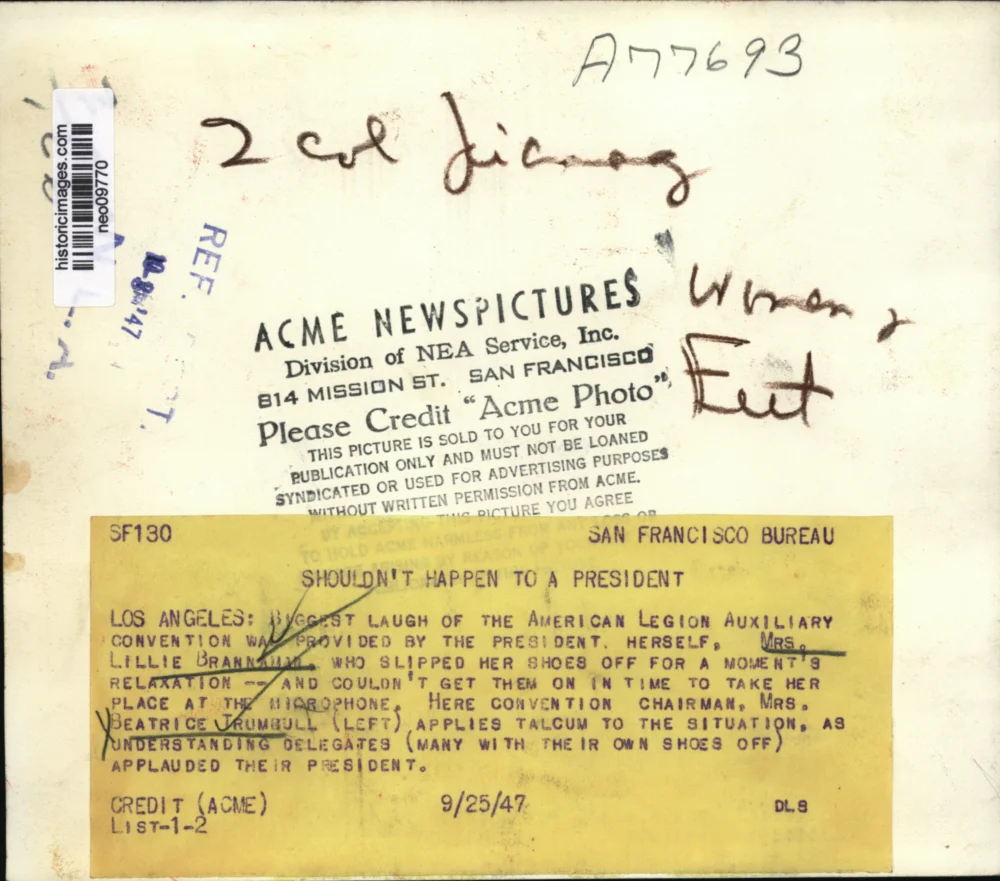 A77693
2 col
historicimages.com
neo09770
REF.
Women
Feet
ACME NEWSPICTURES
Division of NEA Service, Inc.
814 MISSION ST. SAN FRANCISCO
Please Credit "Acme Photo"
THIS PICTURE IS SOLD TO YOU FOR YOUR
PUBLICATION ONLY AND MUST NOT BE LOANED
SYNDICATED OR USED FOR ADVERTISING PURPOSES
WITHOUT WRITTEN PERMISSION FROM ACME.
BY ACCEPTING THIS PICTURE YOU AGREE
TO HOLD ACME HARMLESS FROM ANY LOSS OR
BY REASON OF
SF130 SAN FRANCISCO BUREAU
SHOULDN'T HAPPEN TO A PRESIDENT
LOS ANGELES: BIGGEST LAUGH OF THE AMERICAN LEGION AUXILIARY
CONVENTION WAS PROVIDED BY THE PRESIDENT. HERSELF, MRS.
LILLIE BRANNAMAN, WHO SLIPPED HER SHOES OFF FOR A MOMENT'S
RELAXATION -- AND COULDN'T GET THEM ON IN TIME TO TAKE HER
PLACE AT THE MICROPHONE. HERE CONVENTION CHAIRMAN, MRS.
BEATRICE TRUMBULL (LEFT) APPLIES TALCUM TO THE SITUATION, AS
UNDERSTANDING DELEGATES (MANY WITH THEIR OWN SHOES OFF)
APPLAUDED THEIR PRESIDENT.
CREDIT (ACME) 9/25/47 DLS
LIST-1-2